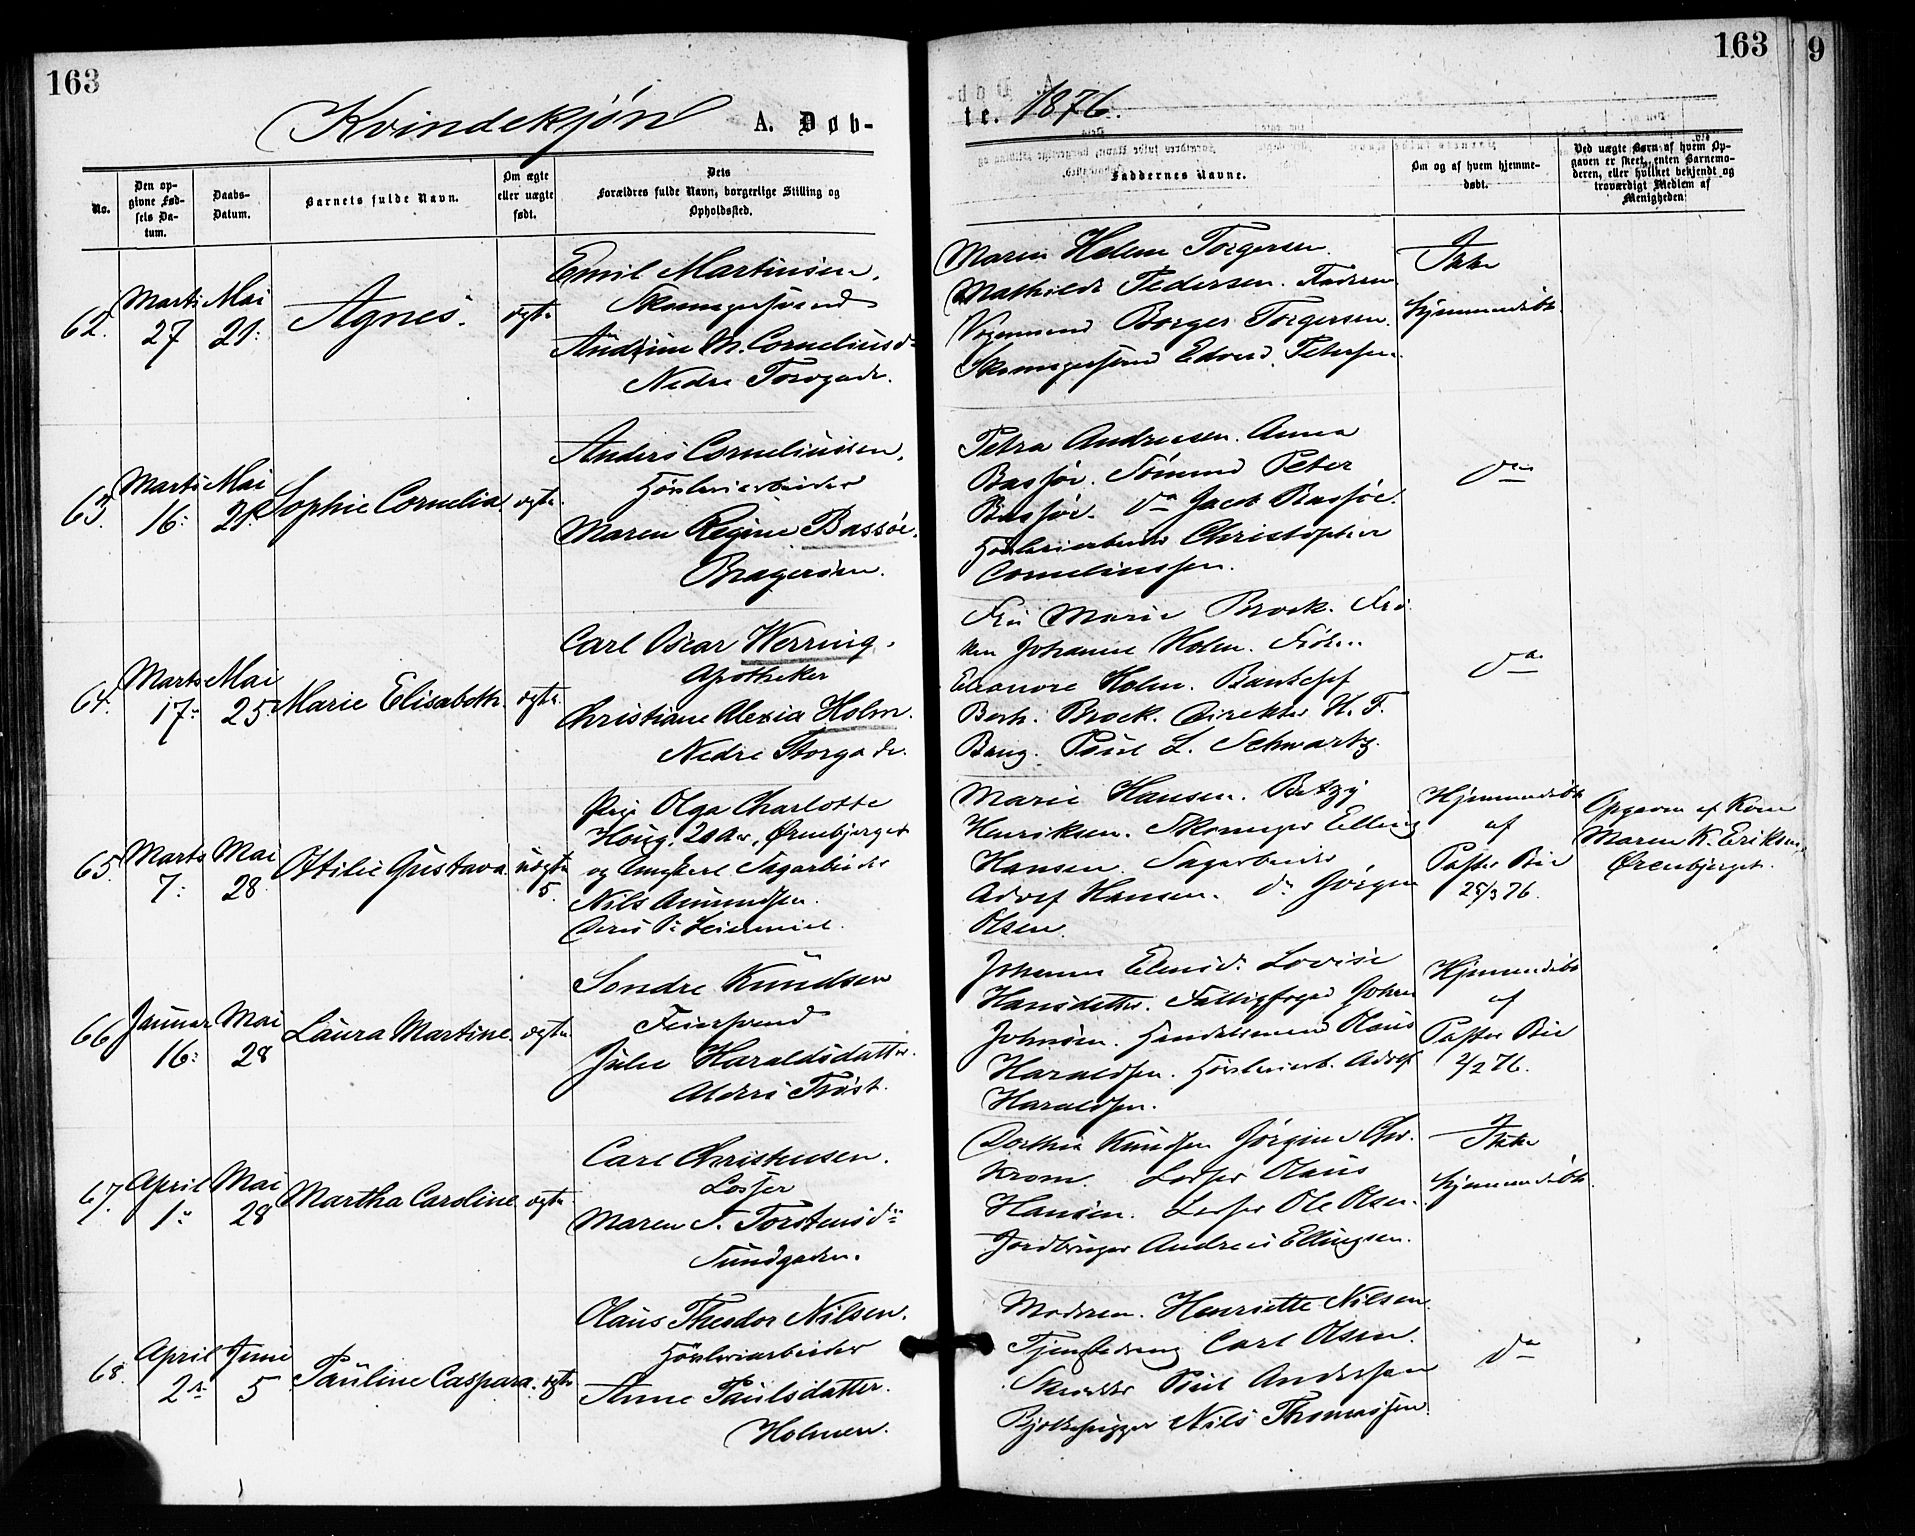 163
163
9
Kvindekjøn A. Døb-
te. 1876.
No.
Den op-
givne Fød-
sels Da-
tum.
Daabs-
Datum.
Barnets fulde Navn.
Om ægte
eller uægte
født.
Dets
Forældres fulde Navn, borgerlige Stilling og
Opholdssted.
Faddernes Navne.
Om og af hvem hjemme-
døbt.
Ved uægte Børn af hvem Op-
gaven er skeet, enten Barnemo-
deren, eller hvilket bekjendt og
troværdigt Medlem af
Menigheden
62. Marts 27 Mai 21: Agnes. ægte
Emil Martinsen.
Skomagersvend
Andrine M. Corneliusd.
Nedre Torvgade.
Maren Helene Torgersen.
Mathilde Pedersen. Faderen
Vognmand Borger Torgersen.
Skomagersvend Edvard Petersen.
Ikke
hjemmedøbt.
63. Marts 16: Mai 21. Sophie Cornelia. ægte.
Anders Corneliussen.
Høvleriarbeider
Maren Regine Bassøe.
Bragerøen.
Petra Andreasen. Anna
Bassøe. Sømand Peter
Bassøe. Do Jacob Bassøe.
Høvleriarbeider Christopher
Corneliussen.
Do
64. Marts 17: Mai 25. Marie Elisabeth. ægte.
Carl Oscar Werring.
Apotheker
Christiane Alexia Holm.
Nedre Storgade.
Fru Marie Brock. Frø-
ken Johanne Holm. Frøken
Eleonore Holm. Bankchef
Berh. Brock. Direktør H. F.
Bang. Poul L. Schwartz.
Do
65. Marts 7: Mai 28. Ottilie Gustava uægte 5.
Pige Olga Charlotte
Houg. 20 Aar, Ørnebjerget
og Ungkarl Sagarbeider
Nils Amundsen.
Marie Hansen. Betzy
Henriksen. Skomager Elling
Hansen. Sagarbeider
Adolf Hansen. Do Jørgen
Olsen.
Hjemmedøbt
af
Pastor Bie
25/3 76.
Opgaven af Kone
Maren K. Eriksen,
Ørenbjerget.
66. Januar 16: Mai 28 Laura Martine. ægte.
Sondre Knudsen
Feiersvend
Julie Haraldsdatter.
Johanne Elensd. Lovise
Hansdatter. Fattigfoged Johan
Johnsen. Handelsmand Olaus
Haraldsen. Høvleriarb. Adolf
Haraldsen.
Hjemmedøbt
af
Pastor Bie
2/2 76.
67. April 1: Mai 28 Martha Caroline. ægte
Carl Christensen.
Losser
Maren T. Torstensdr
Sundgaden.
Dorthea Knudsen Jørgine Chr.
Krom. Losser Olaus
Hansen. Losser Ole Olsen.
Jordbruger Andreas Ellingsen.
Ikke
hjemmedøbt.
68. April 2: Juni 5 Pauline Caspara. ægte
Olaus Theodor Nilsen.
Høvleriarbeider
Anne Paulsdatter.
Holmen.
Moderen. Henriette Nilsen.
Tjenestedreng Carl Olsen.
Poul Andersen
Nils Thomassen.
Do